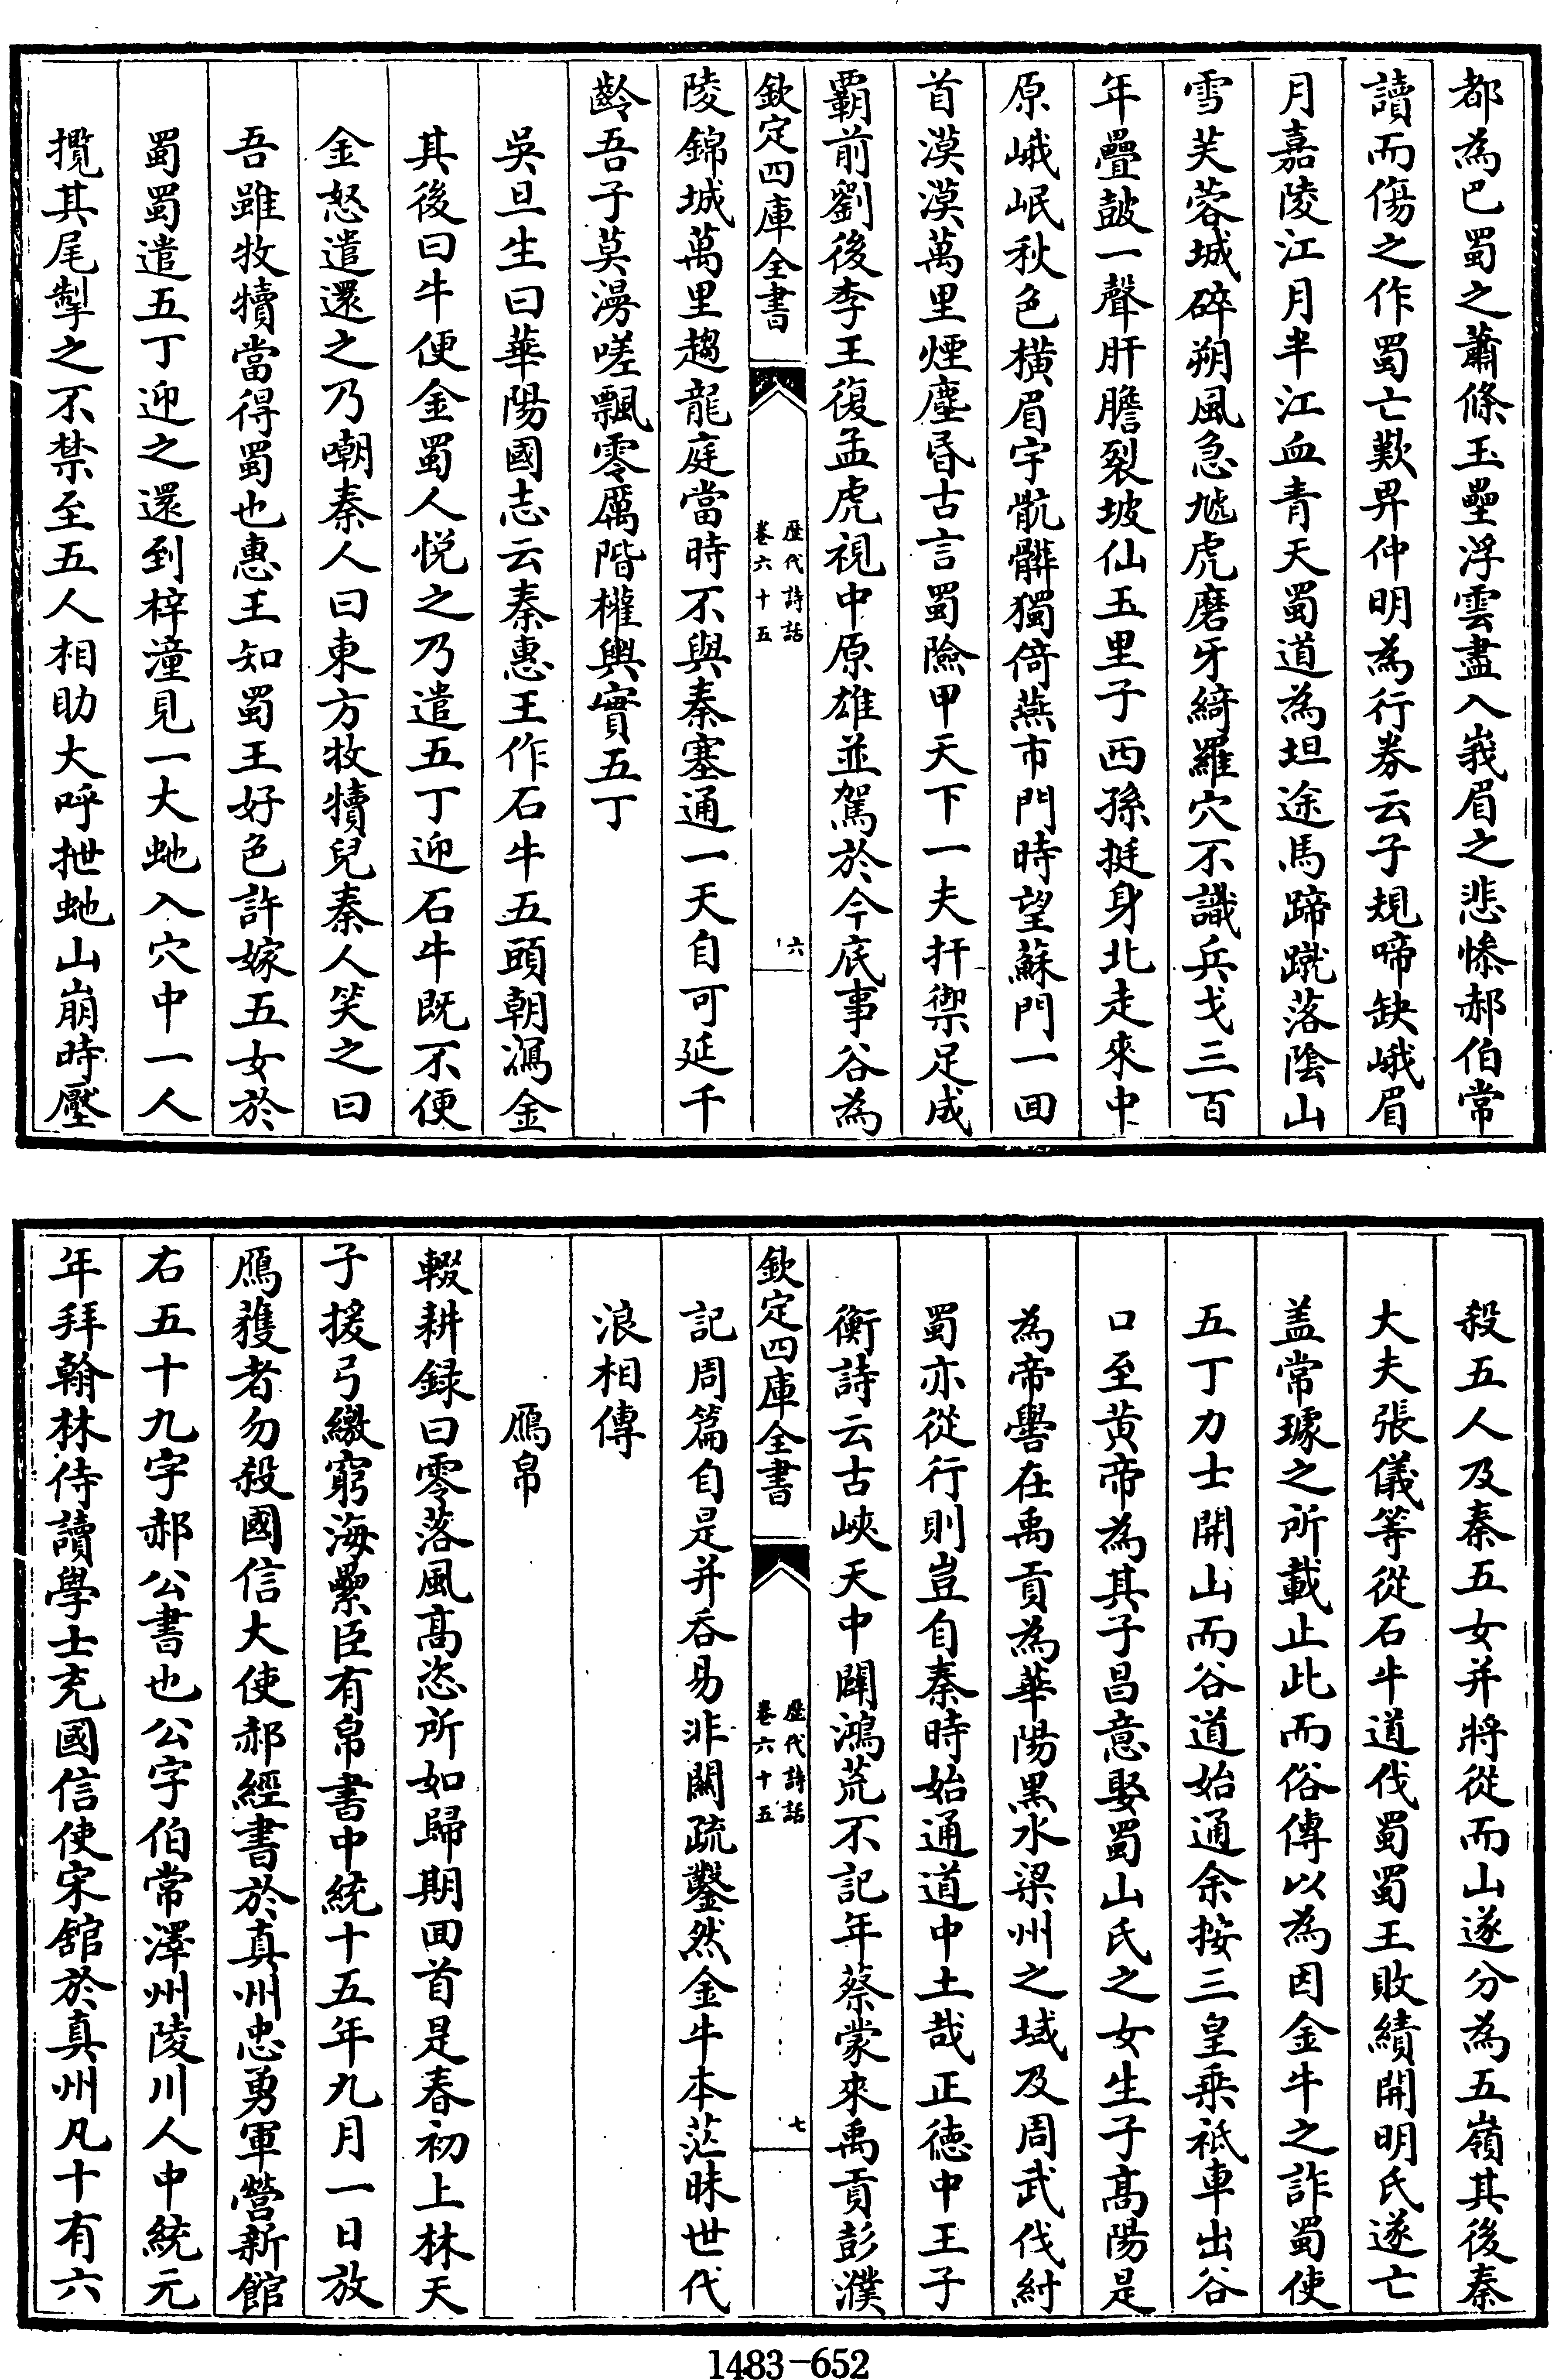 都為巴蜀之蕭條玉壘浮雲盡入峩眉之悲慘郝伯常
讀而傷之作蜀亡歎畀仲明為行券云子規啼缺峨眉
月嘉陵江月半江血青天蜀道為坦途馬蹄蹴落陰山
雪芙蓉城碎朔風急虓虎磨牙綺羅穴不識兵戈三百
年疊鼓一聲肝膽裂坡仙五里子西孫挺身北走來中
原峨岷秋色橫眉宇骯髒獨倚燕市門時望蘇門一回
首漠漠萬里煙塵昏古言蜀險甲天下一夫扞禦足成
霸前劉後李王復孟虎視中原雄並駕於今底事谷為
欽定四庫全書
歴代詩話
卷六十五
六
陵錦城萬里趨龍庭當時不與秦塞通一天自可延千
齡吾子莫漫嗟飄零厲階權輿實五丁
吳旦生曰華陽國志云秦惠王作石牛五頭朝瀉金
其後曰牛便金蜀人悅之乃遣五丁迎石牛既不便
金怒遣還之乃嘲秦人曰東方牧犢兒秦人笑之曰
吾雖牧犢當得蜀也惠王知蜀王好色許嫁五女於
蜀蜀遣五丁迎之還到梓潼見一大虵入穴中一人
攬其尾掣之不禁至五人相助大呼抴虵山崩時壓
殺五人及秦五女并將從而山遂分為五嶺其後秦
大夫張儀等從石牛道伐蜀蜀王敗績開明氏遂亡
盖常璩之所載止此而俗傳以為因金牛之詐蜀使
五丁力士開山而谷道始通余按三皇乘祗車出谷
口至黃帝為其子昌意娶蜀山氏之女生子高陽是
為帝嚳在禹貢為華陽黑水梁州之域及周武伐紂
蜀亦從行則豈自秦時始通道中土哉正德中王子
衡詩云古峽天中闢鴻荒不記年蔡蒙來禹貢彭濮
欽定四庫全書
歴代詩話
卷六十五
七
記周篇自是并吞易非關疏鑿然金牛本茫昧世代
浪相傳
鴈帛
輟耕録曰零落風高恣所如歸期回首是春初上林天
子援弓繳窮海纍臣有帛書中統十五年九月一日放
鴈獲者勿殺國信大使郝經書於真州忠勇軍營新館
右五十九字郝公書也公字伯常澤州陵川人中統元
年拜翰林侍讀學士充國信使宋舘於真州凡十有六
1483-652